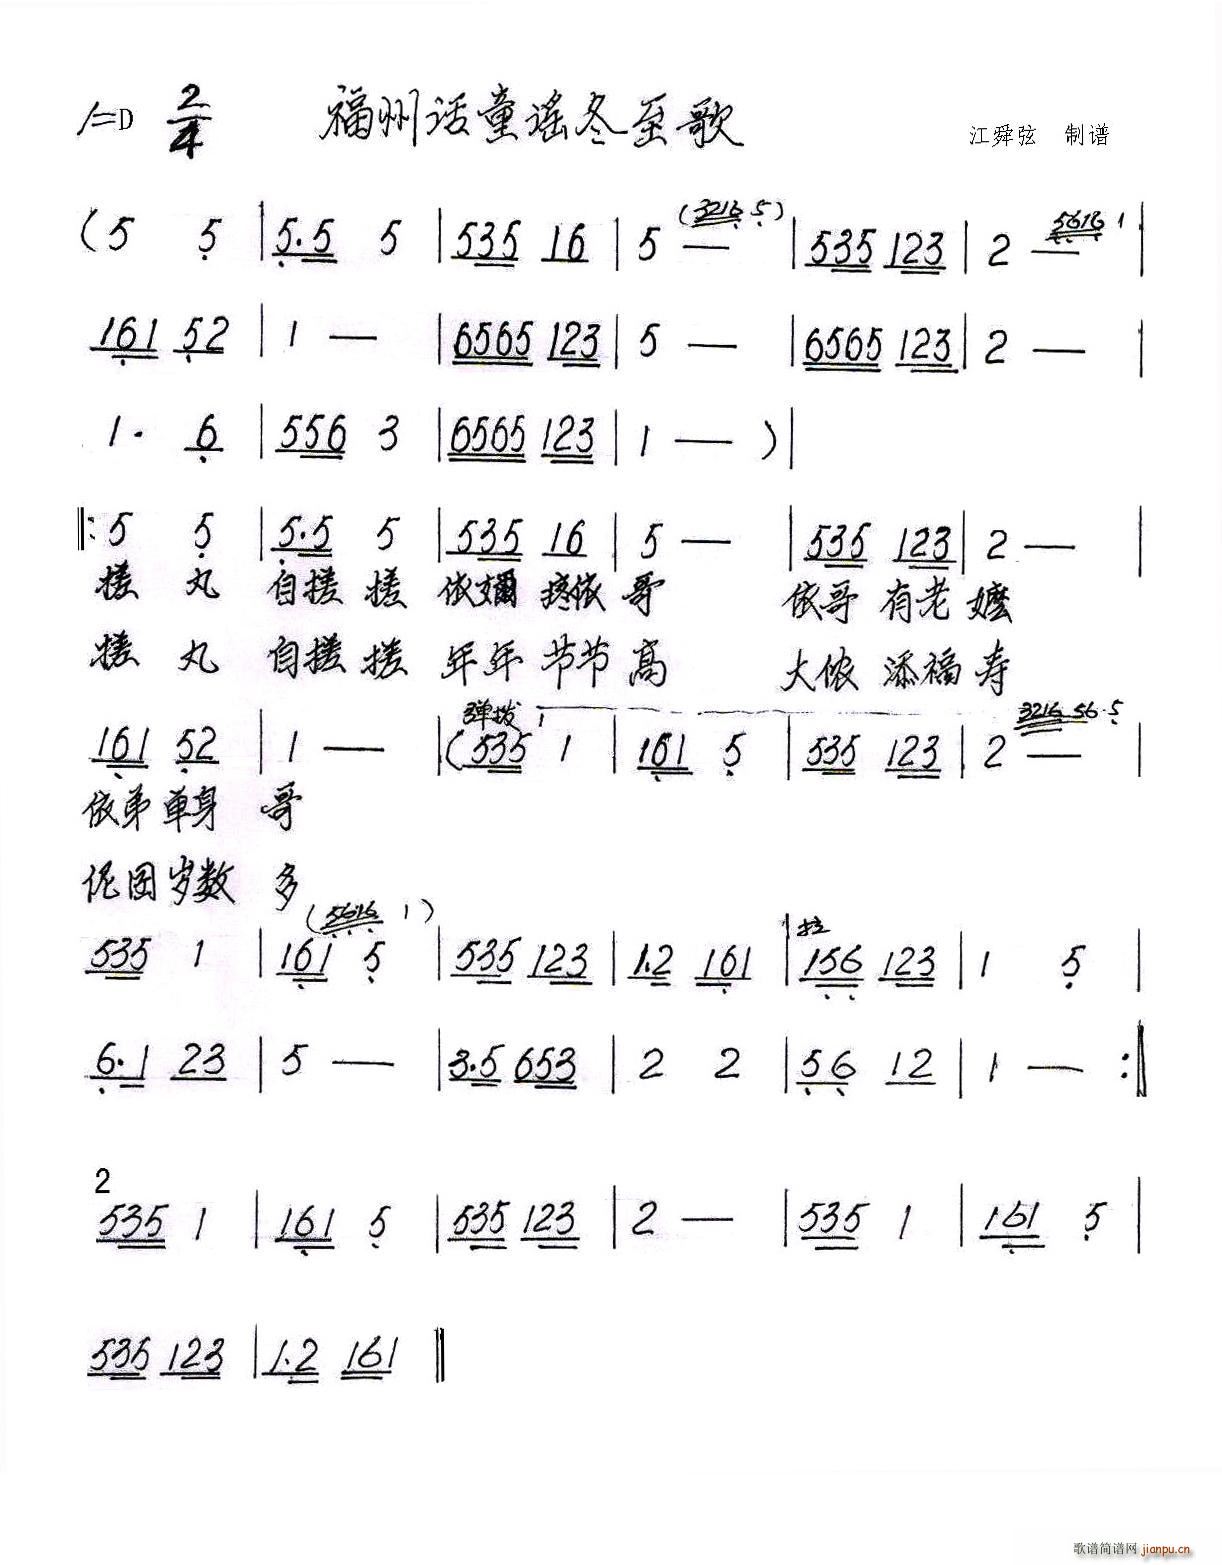 1=D 2/4 福州话童谣冬至歌
江舜弦 制谱
(3216 5) 5616 1
(5 5 | 5.5 5 | 535 16 | 5 — | 535 123 | 2 — |
161 52 | 1 — | 6565 123 | 5 — | 6565 123 | 2 — |
1. 6 | 556 3 | 6565 123 | 1 — ) |
‖: 5 5 | 5.5 5 | 535 16 | 5 — | 535 123 | 2 — |
搓 丸 自搓 搓 依 疼依 哥 依哥 有老 嬷
搓 丸 自搓 搓 年年 节节 高 大依 添福 寿
弹拨 3216 56.5
161 52 | 1 — | (535 1 | 161 5 | 535 123 | 2 — |
依弟 单身 哥
伲囝 岁数 多
(5616 1) 拉
535 1 | 161 5 | 535 123 | 1.2 161 | 156 123 | 1 5 |
6.1 23 | 5 — | 3.5 653 | 2 2 | 56 12 | 1 — :‖
2
535 1 | 161 5 | 535 123 | 2 — | 535 1 | 161 5 |
535 123 | 1.2 161 ‖
歌谱简谱网 jianpu.cn